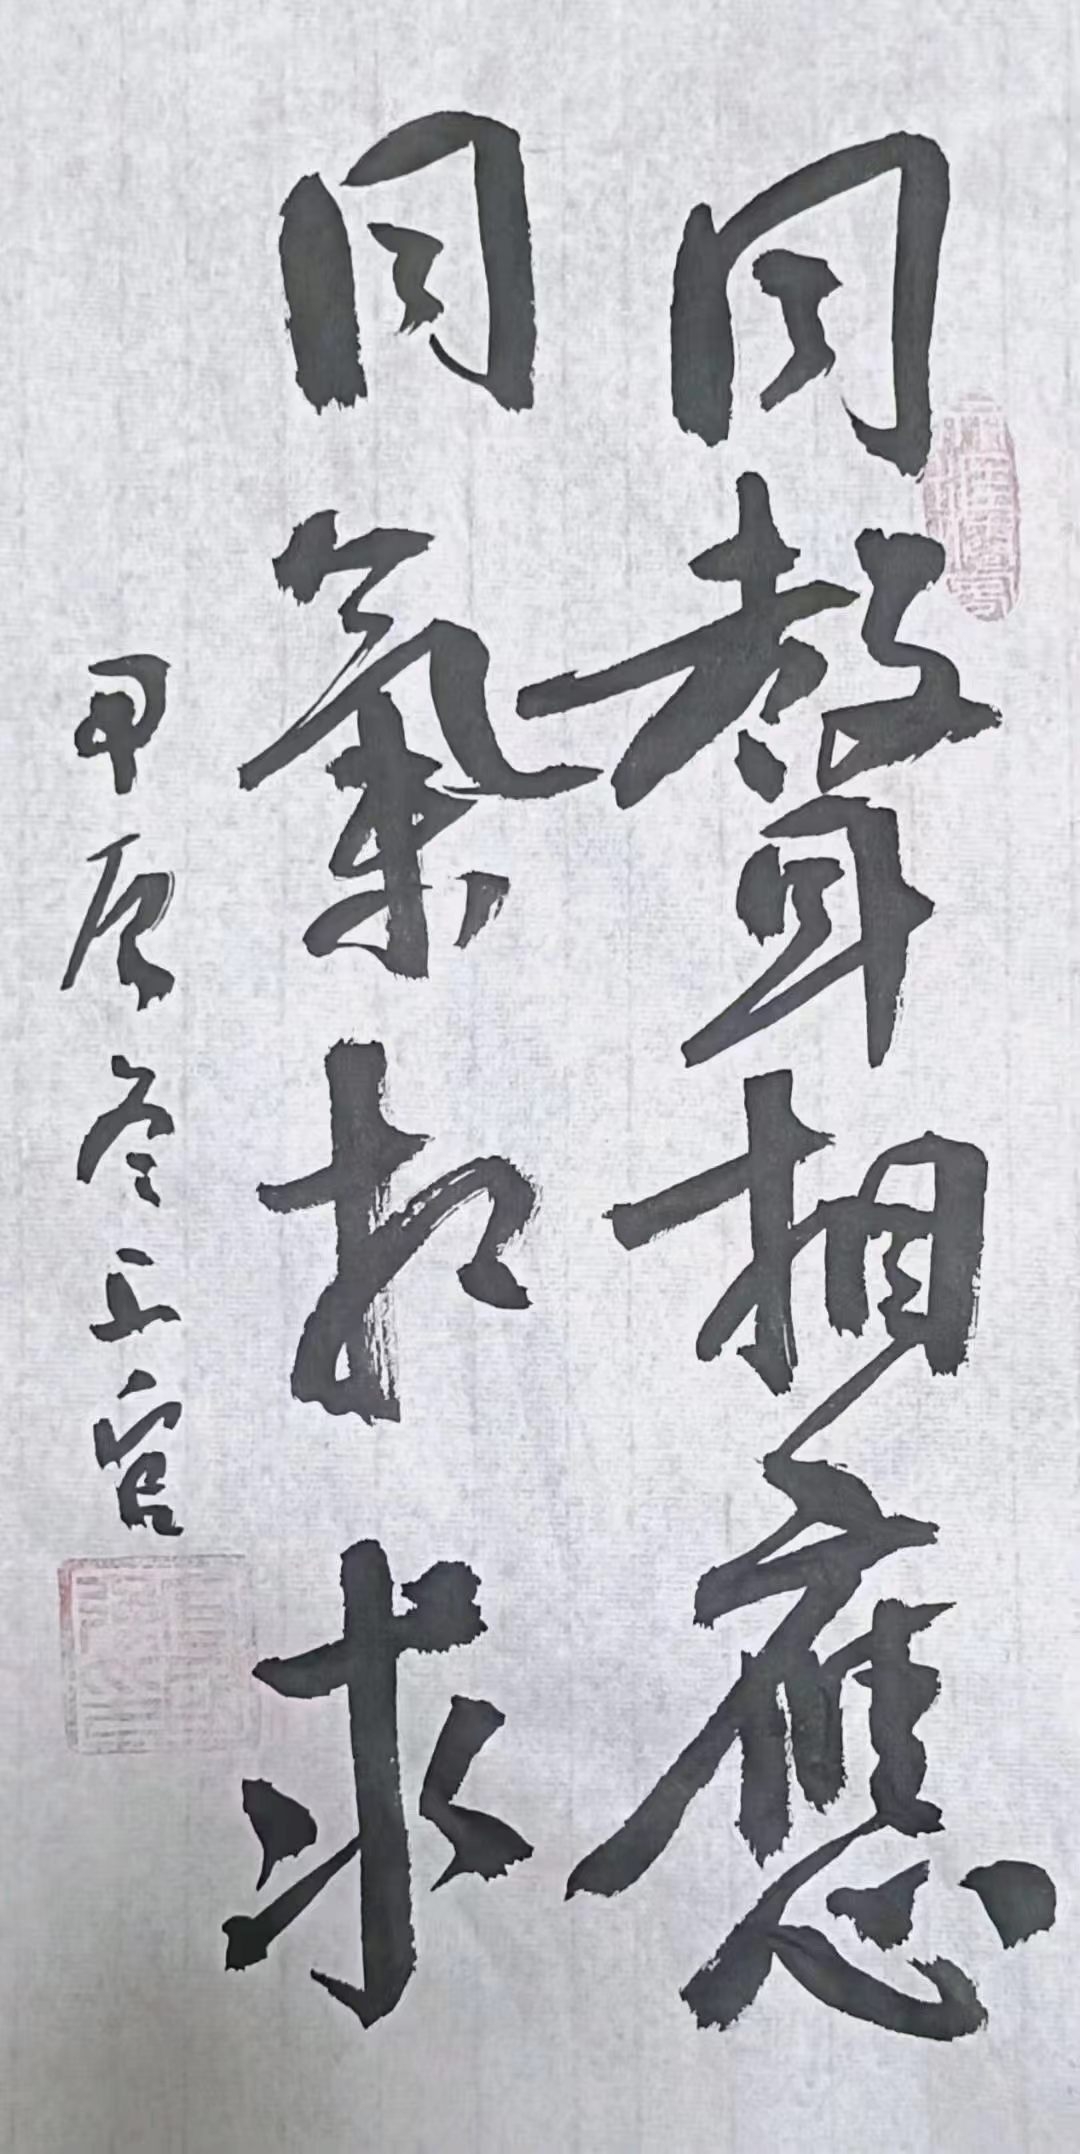 同聲相應
同氣相求
甲辰冬上官